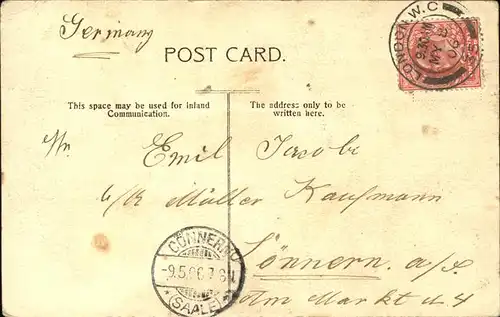 Germany
POST CARD.
LONDON. W.C
9.30 AM
MY 8
06
35
This space may be used for inland
Communication.
The address only to be
written here.
Emil Jacobi
Müller Kaufmann
Cönnern. a/S.
Am Markt
CÖNNERN
-9.5.06.7-8N.
* (SAALE) *